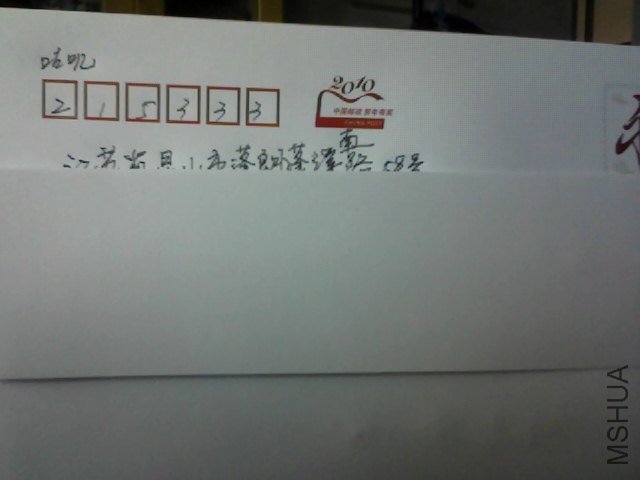 咕叽
2 1 5 3 3 3
2010
中国邮政 贺年有奖
CHINA POST
南
江苏省昆山市蓬朗蓬溪路58号
MSHUA